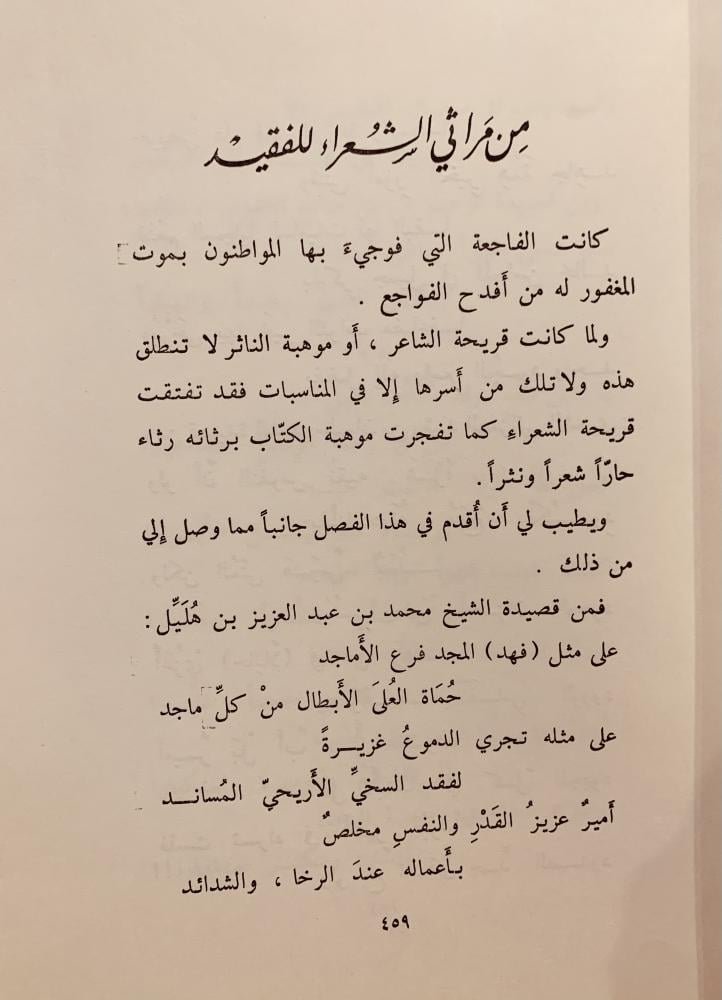 مِن مَراثي الشُعراء للفقيدْ
كانت الفاجعة التي فوجيءَ بها المواطنون بموت
المغفور له من أَفدح الفواجع .
ولما كانت قريحة الشاعر ، أَو موهبة الناثر لا تنطلق
هذه ولا تلك من أَسرها إِلا في المناسبات فقد تفتقت
قريحة الشعراءِ كما تفجرت موهبة الكتّاب برثائه رثاء
حارّاً شعراً ونثراً .
ويطيب لي أَن أُقدم في هذا الفصل جانباً مما وصل إِلي
من ذلك .
فمن قصيدة الشيخ محمد بن عبد العزيز بن هُلَيِّل :
على مثل (فهد) المجد فرع الأَماجد
حُمَاة العُلىَ الأَبطال منْ كلِّ ماجد
على مثله تجري الدموعُ غزيــرةً
لفقد السخيِّ الأَريحيّ المُسانــد
أَميرٌ عزيزُ القَدْرِ والنفسِ مخلصٌ
بـأَعماله عندَ الرخا ، والشدائد
٤٥٩